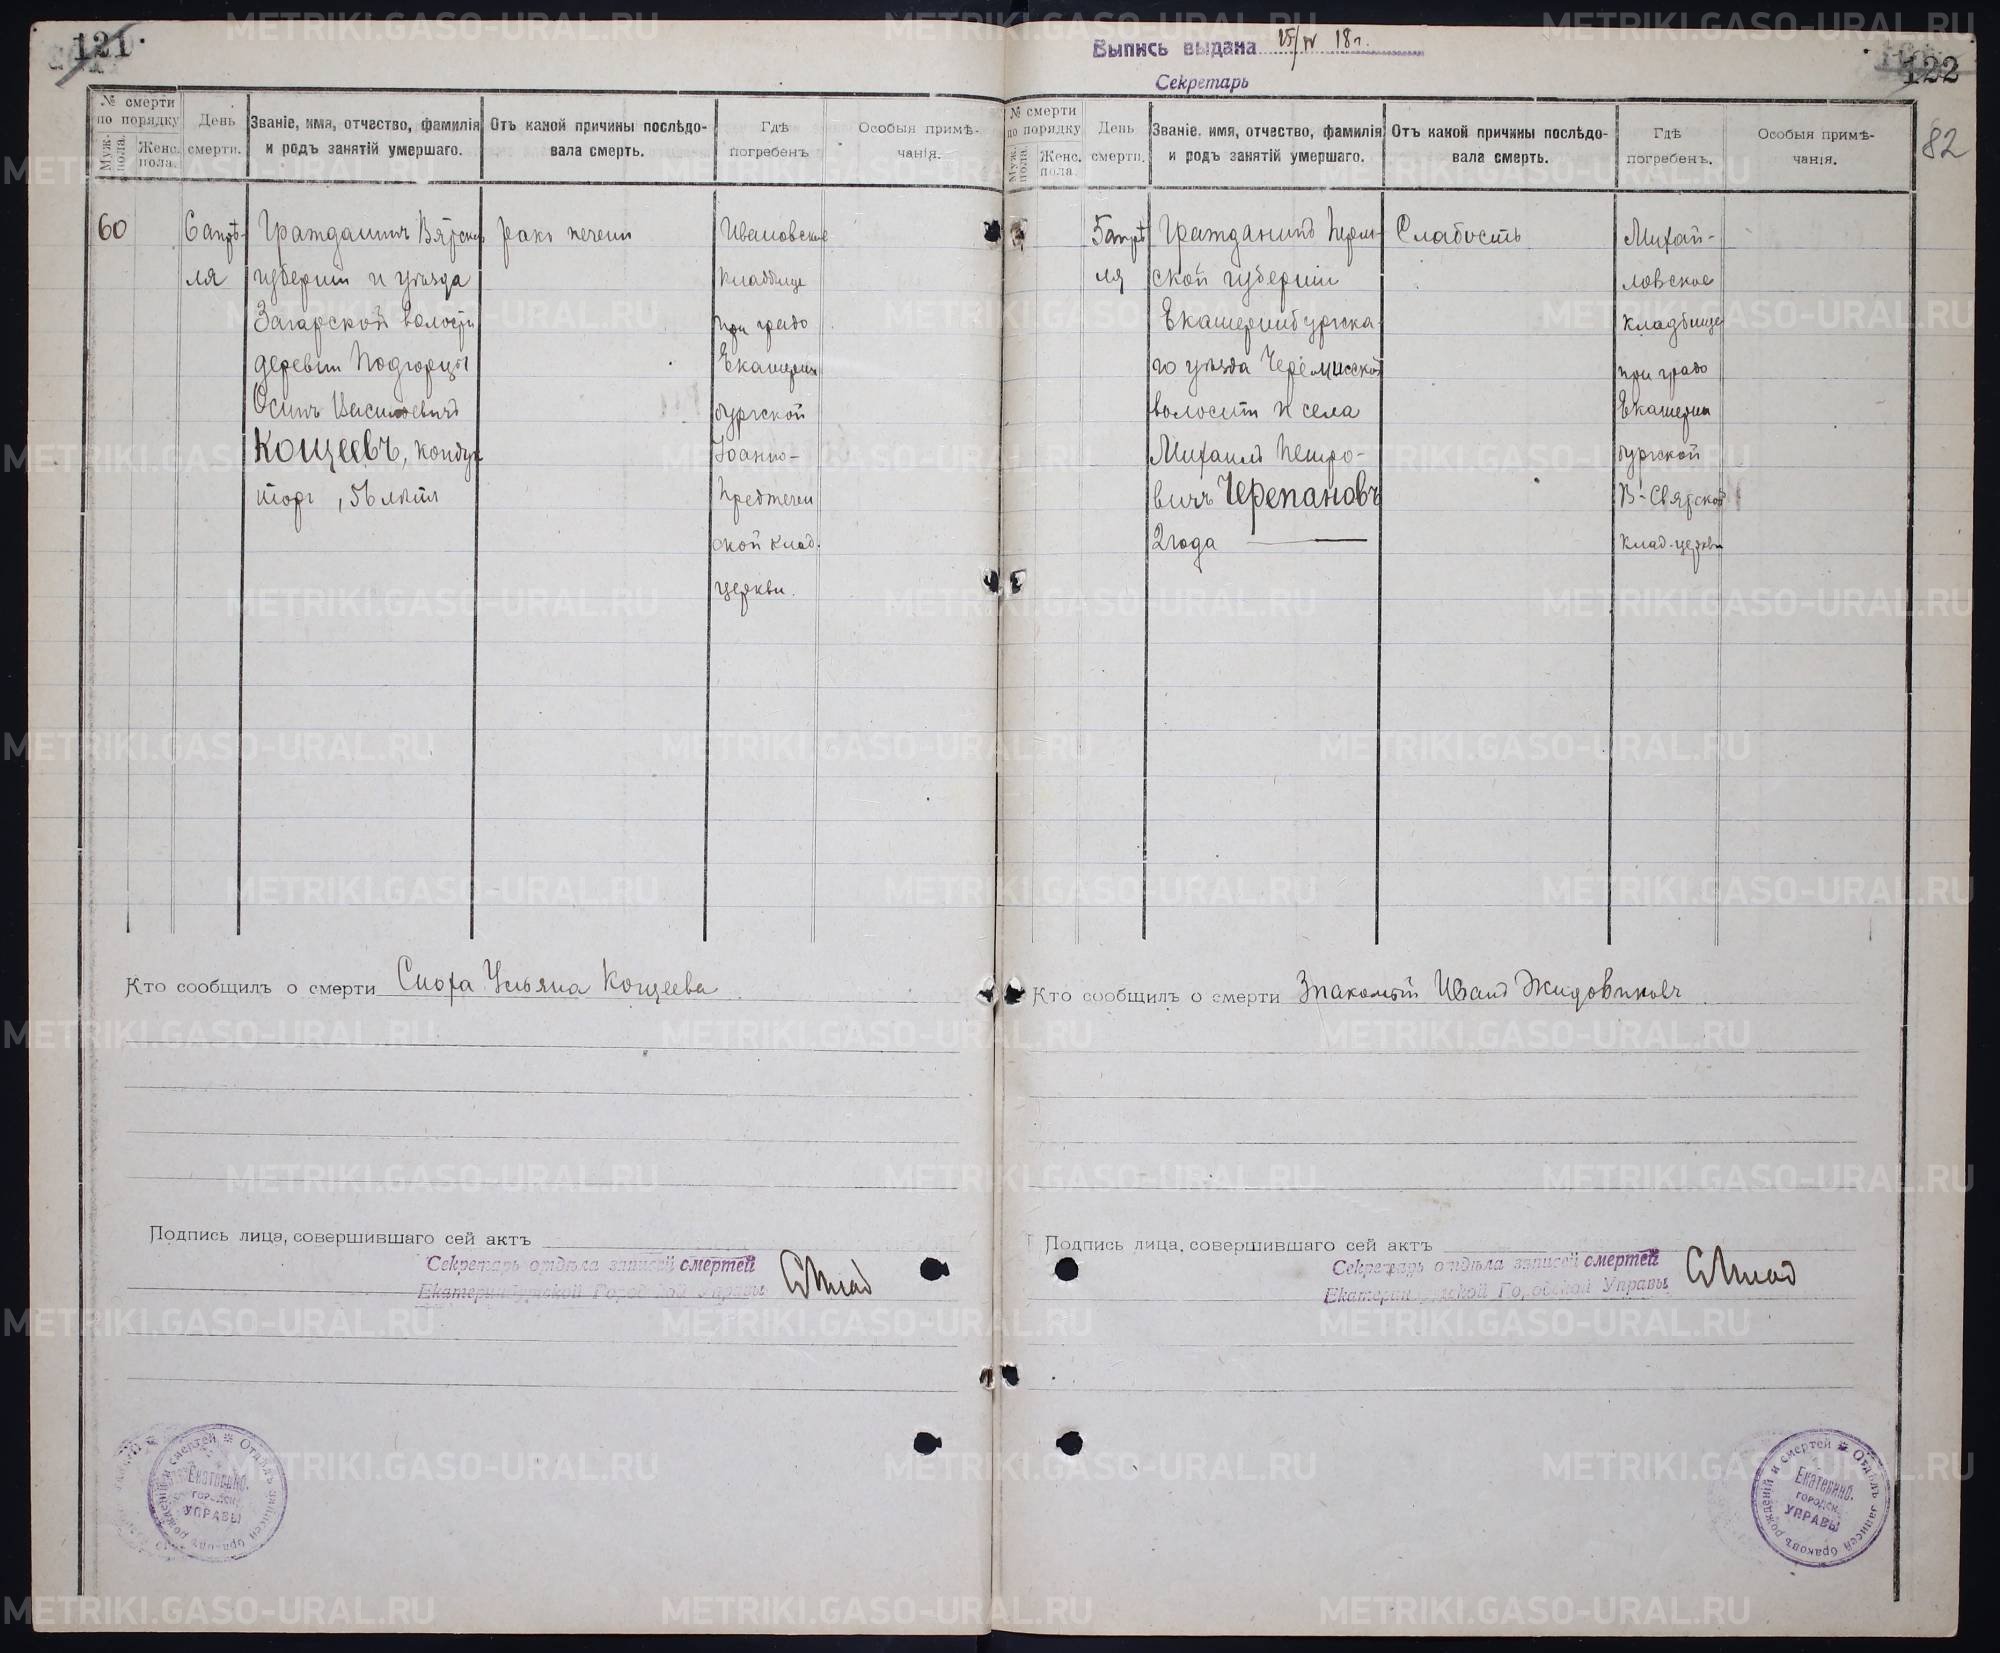 121
№ смерти
по порядку
Муж. пола.
Женс. пола.
День смерти.
Званіе, имя, отчество, фамилія
и родъ занятій умершаго.
Отъ какой причины послѣдо-
вала смерть.
Гдѣ
погребенъ
Особыя примѣ-
чанія.
60
6 апрѣ-
ля
Гражданинъ Вятской
губерніи и уѣзда
Загарской волости
деревни Подгорцы
Осипъ Васильевичъ
Кощеевъ, кондук
торъ, 56 лѣтъ
ракъ печени
Ивановское
кладбище
при градо
Екатерин
бургской
Іоанно-
Предтечен
ской клад.
церкви.
Кто сообщилъ о смерти Сноха Ульяна Кощеева
Подпись лица, совершившаго сей актъ
Секретарь отдѣла записей смертей
Екатеринбургской Городской Управы
Отдѣлъ записей браковъ рождений и смертей
Екатеринб.
городск.
УПРАВЫ
Выпись выдана 25/IV 18 г.
Секретарь
122
82
№ смерти
по порядку
Муж. пола.
Женс. пола.
День
смерти.
Званіе, имя, отчество, фамилія
и родъ занятій умершаго.
Отъ какой причины послѣдо-
вала смерть.
Гдѣ
погребенъ.
Особыя примѣ-
чанія.
5 апрѣ
ля
Гражданинъ Перм-
ской губерніи
Екатеринбургска-
го уѣзда Черемисской
волости и села
Михаилъ Петро-
вичъ Черепановъ
2 года
Слабость
Михай-
ловское
кладбище
при градо
Екатерин
бургской
В-Святской
клад. церкви
Кто сообщилъ о смерти Знакомый Иванъ Жидовиновъ
Подпись лица, совершившаго сей актъ
Секретарь отдѣла записей смертей
Екатеринбургской Городской Управы
Отдѣлъ записей браковъ рожденій и смертей
Екатеринб.
городск.
УПРАВЫ
METRIKI.GASO-URAL.RU